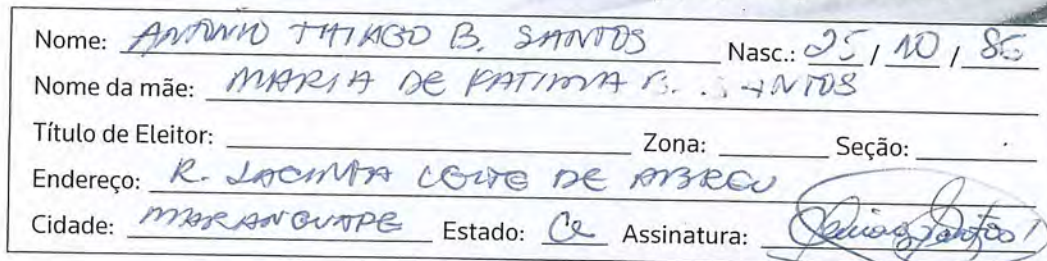 Nome: ANTONIO THIAGO B. SANTOS Nasc.: 25 / 10 / 86
Nome da mãe: MARIA DE FATIMA B. SANTOS
Título de Eleitor: Zona: Seção:
Endereço: R. JACINTA LEITE DE ABREU
Cidade: MARANGUAPE Estado: Ce Assinatura: